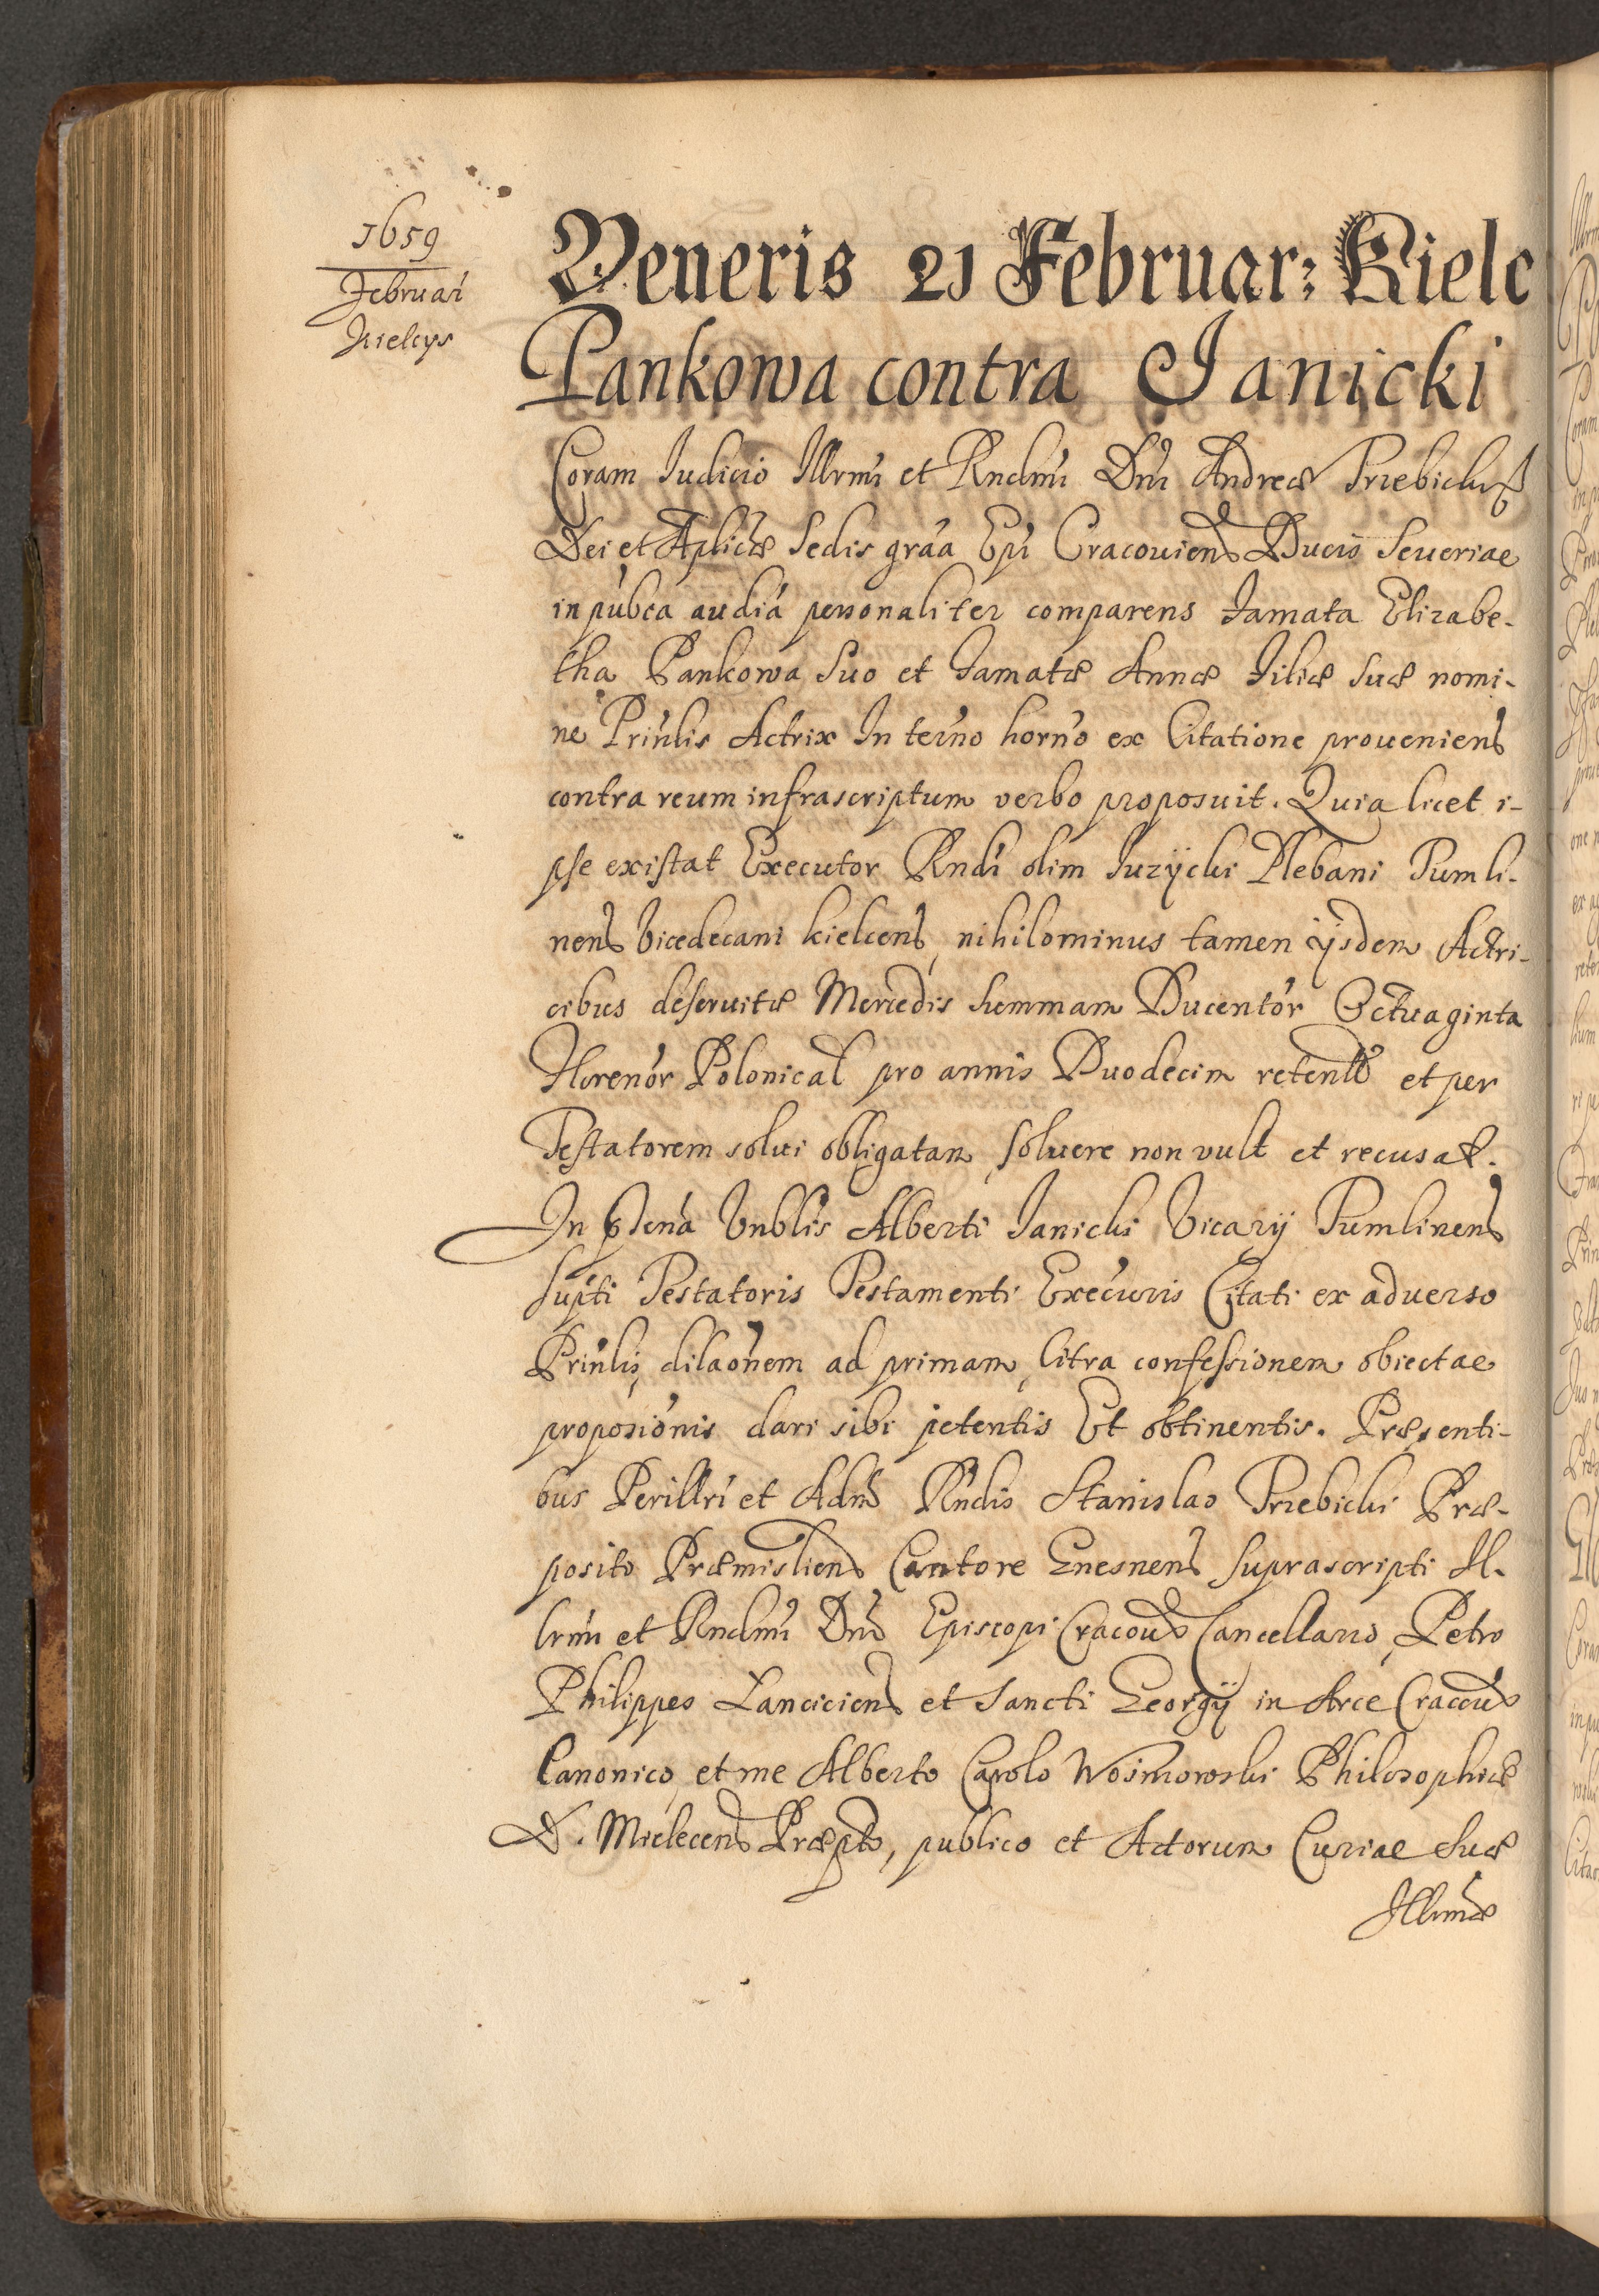 1659
Februari
Kielcys
Veneris 21 Februar: Kielc
Pankowa contra Janicki
Coram Iudicio Illrmi et Rndmi Dni Andreæ Trzebicki
Dei et Aplicæ Sedis gráa Epi Cracouiens Ducis Seueriae
in pubca audiá personaliter comparens Famata Elizabe-
tha Pankowa Suo et Famatæ Annæ Filiæ suæ nomi-
ne Prinlis Actrix In termo horno ex Citatione proueniens
contra reum infrascriptum verbo proposuit. Quia licet i-
pse existat Executor Rndi olim Iurzycki Plebani Tumli-
nens Vicedecani kielcens, nihilominus tamen ijsdem Actri-
cibus deseruitæ Mercedis summam Ducentor Octuaginta
Florenor Polonical pro annis Duodecim retent et per
Testatorem solui obligatam, soluere non vult et recusat.
In pntia Vnblis Alberti Janicki Vicarij Tumlinens
supti Testatoris Testamenti Execuris Citati ex aduerso
Prinlis, dilaonem ad primam, Citra confessionem obiectae
proposionis dari sibi petentis Et obtinentis. Præsenti-
bus Perillri et Adm Rndis Stanislao Trzebicki Præ-
posito Præmisliens Cantore Gnesnens suprascripti Il-
lrmi et Rndmi Dni Episcopi Cracouis Cancellario, Petro
Philippes Lanciciens et Sancti Georgij in Arce Cracou
Canonico, et me Alberto Carolo Woimowski Philosophiæ
D. Mielecens Præpto, publico et Actorum Curiae Suæ
Illrmæ